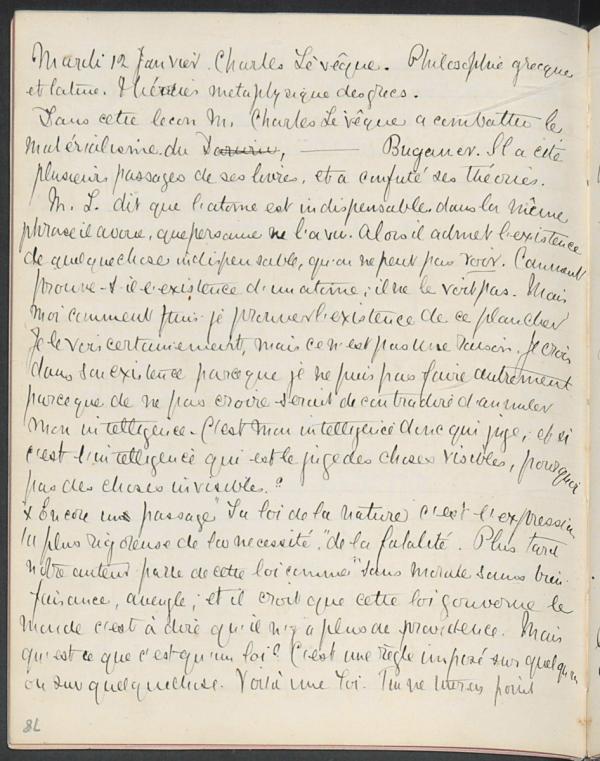 Mardi 12 Janvier. Charles Lévêque. Philosophie grecque
et latine. Théories metaphysique des grecs.
Dans cette lecon M. Charles Lévêque a combattu le
Matérialisme du Darwin, —— Buganer. Il a cité
plusieurs passages de ses livres, et a confuté ses théories.
M. L. dit que l'atome est indispensable dans la même
phrase il avoue, que personne ne l'a vu. Alors il admet l'existence
de quelque chose indispensable, qu'on ne peut pas voir. Comment
prouve-t-il l'existence d'un atome; il ne le voit pas. Mais
moi comment puis-je prouver l'existence de ce plancher
Je le vois certainement, mais ce n'est pas une raison. Je crois
dans son existence parceque je ne puis pas faire autrement
parceque de ne pas croire serait de contradire d'annuler
mon intelligence. C'est mon intelligence donc qui juge; et si
c'est l'intelligence qui est le juge des choses visibles, pourquoi
pas des choses invisible.?
x Encore un passage "La loi de la nature c'est l'expression
la plus rigoreuse de la necessité," de la fatalité. Plus tard
notre auteur parle de cette loi comme "sans morale sans bien-
faisance, aveugle; et il croit que cette loi gouverne le
monde c'est à dire qu'il n'y a plus de providence. Mais
qu'est ce que c'est qu'un loi? C'est une règle imposé sur quelqu'un
ou sur quelquechose. Voilà une loi. Tu ne point
78